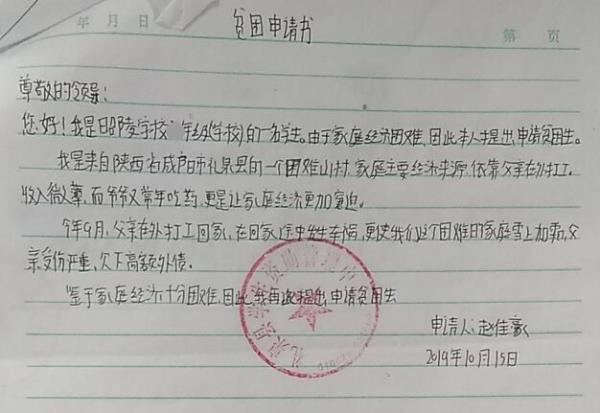 年 月 日
第 页
贫困申请书
尊敬的领导:
您好!我是昭陵学校 年级(学校)的一名学生。由于家庭经济困难,因此本人提出申请贫困生。
我是来自陕西省咸阳市礼泉县的一个困难山村,家庭主要经济来源,依靠父亲在外打工,
收入微薄,而爷爷又常年吃药,更是让家庭经济更加窘迫。
今年9月,父亲在外打工回家,在回家途中发生车祸,更使我们这个困难的家庭雪上加霜,父
亲受伤严重,欠下高额外债。
鉴于家庭经济十分困难,因此,我再此提出申请贫困生
礼泉县学生资助管理中
申请人:赵佳豪
2019年10月15日